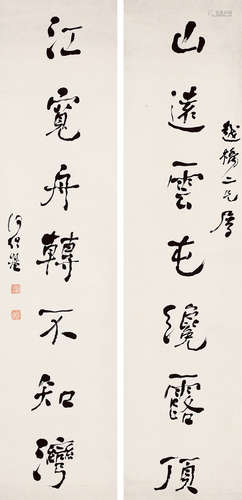 山遠雲屯纔露頂
越橋二兄屬
江寬舟轉不知灣
何紹基